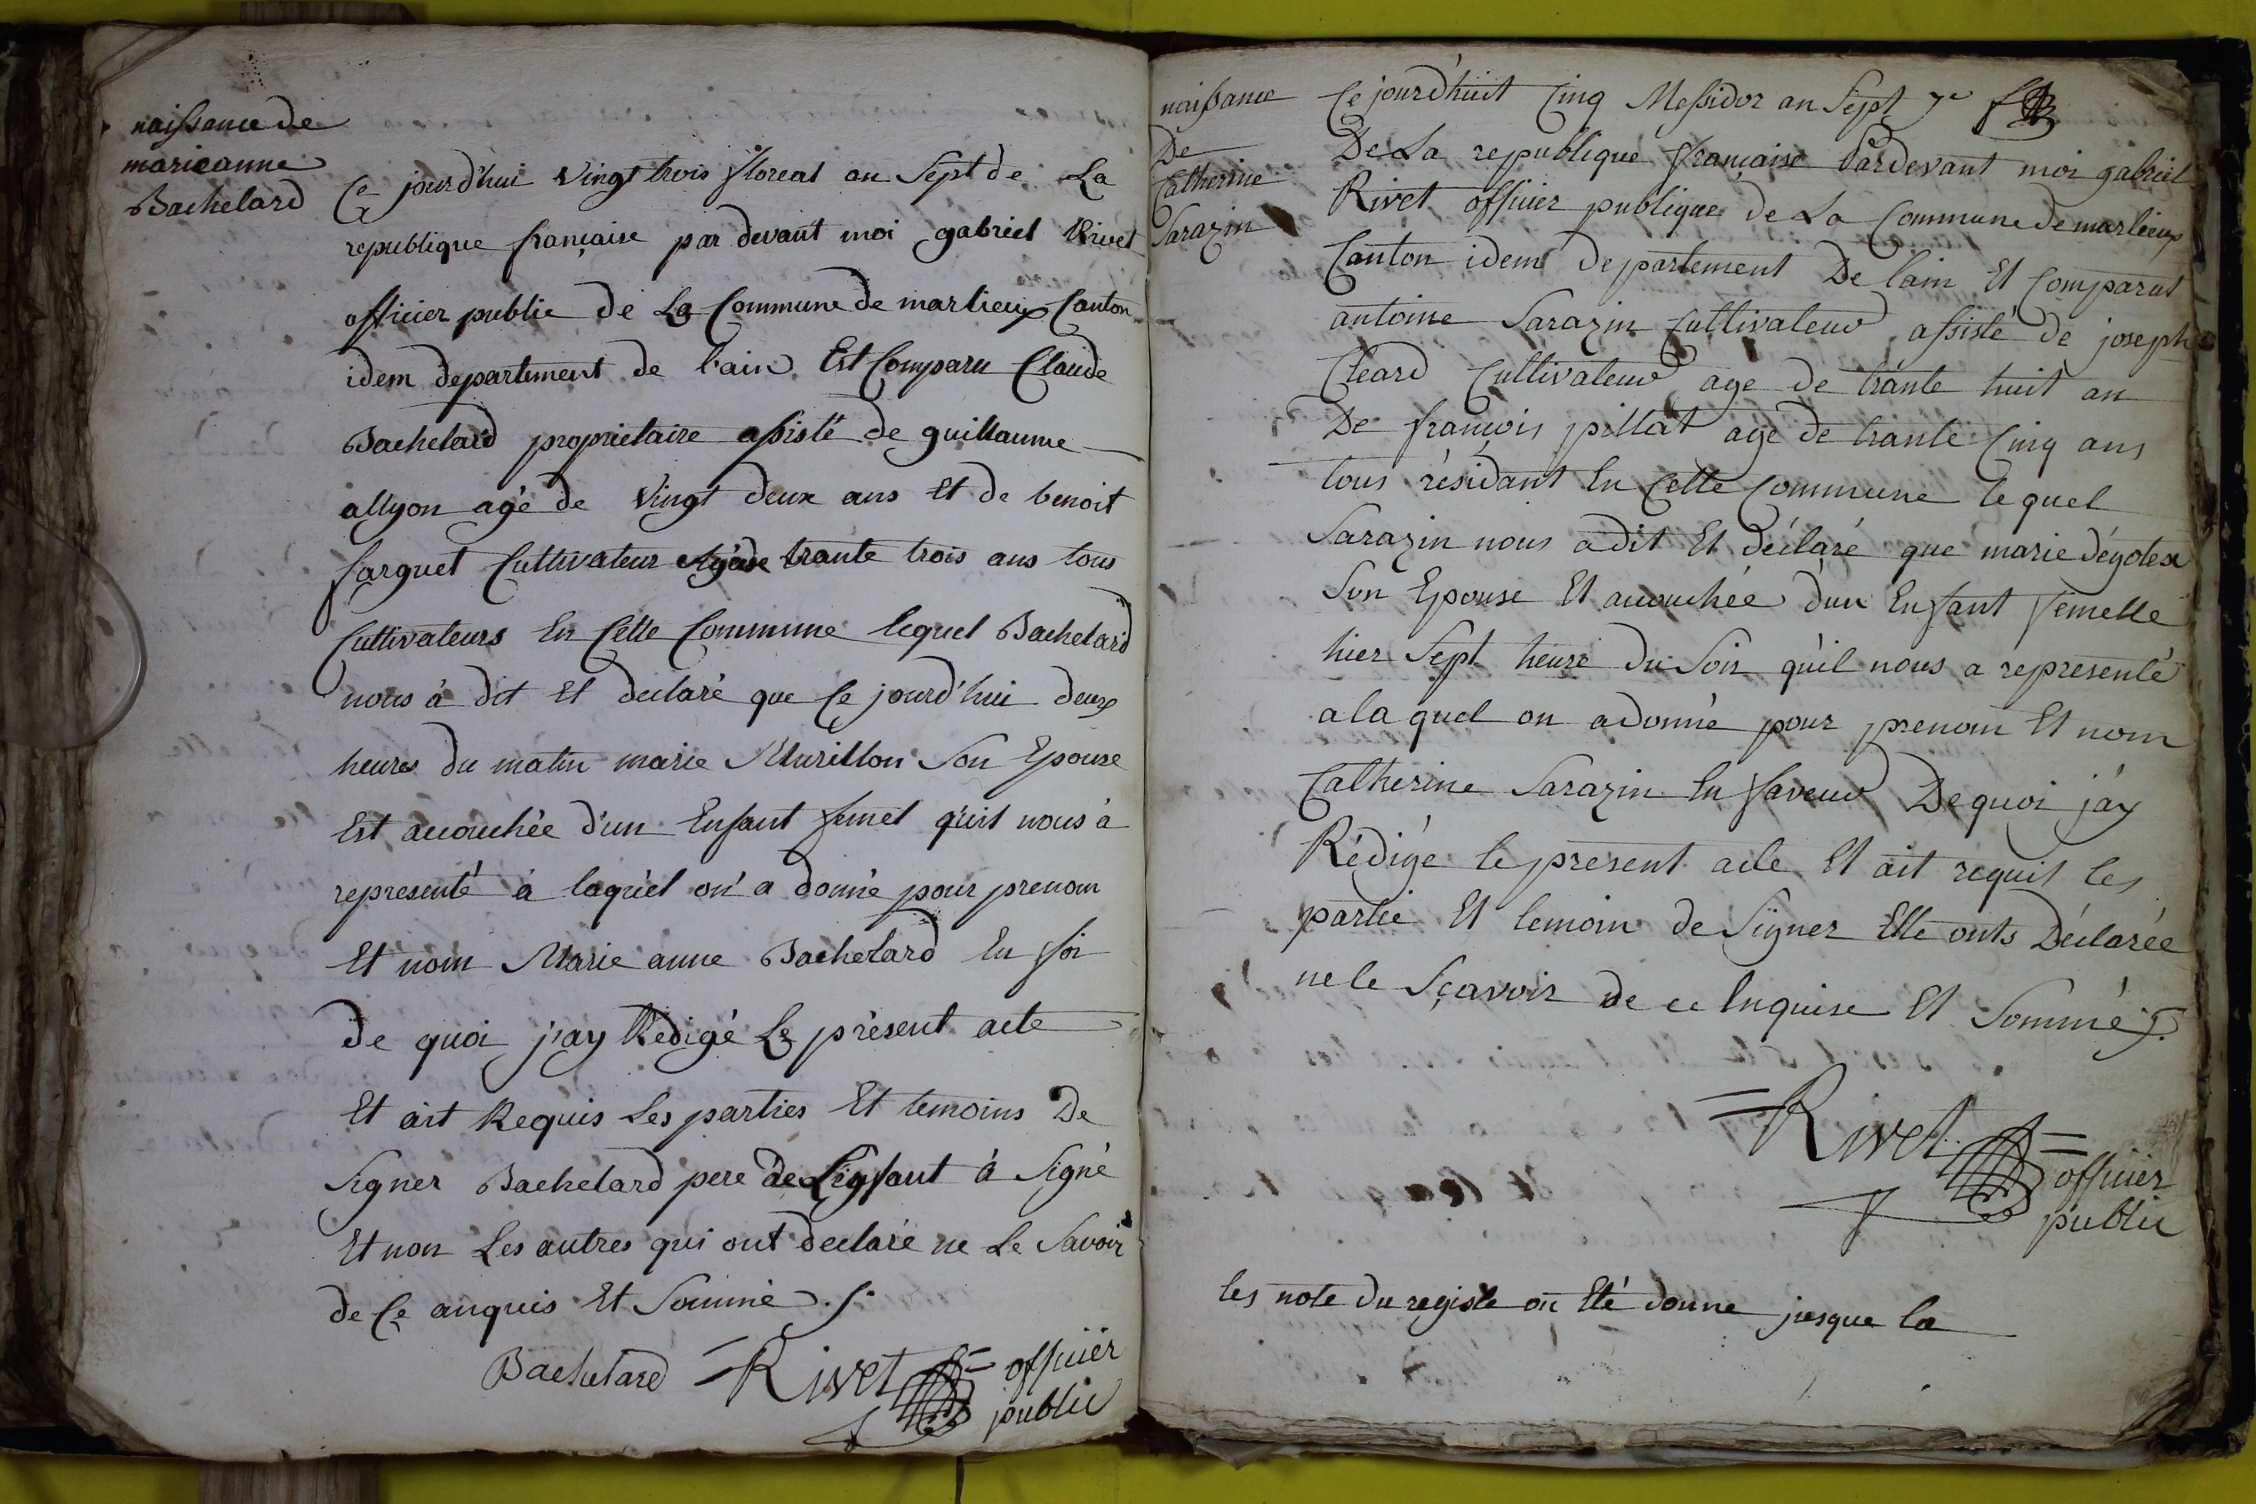 naissance de
marieanne
Bachelard
Ce jourd'hui vingt trois floreal an Sept de La
republique française par devant moi gabriel Rivet
officier public de La Commune de marlieux Canton
idem departement de l'ain Est Comparu Claude
Bachelard proprietaire assisté de guillaume
allyon agé de vingt deux ans Et de benoit
farguet Cultivateur Agé de trante trois ans tous
Cultivateurs En Cette Commune lequel Bachelard
nous à dit Et declaré que Ce jourd'hui deux
heures du matin marie Murillon Son Epouse
Est acouchée d'un Enfant femel qu'il nous à
representé à laquel on a donné pour prenom
Et nom Marie anne Bachelard En foi
de quoi j'ay Redigé Le présent acte
Et ait Requis Les parties Et temoins De
Signer Bachelard pere de L'enfant à Signé
Et non Les autres qui ont declaré ne Le Savoir
de Ce anquis Et Sommé ./.
Bachelard = Rivet = officier
public
naissance
De
Catherine
Sarazin
Ce jourd'huit Cinq Messidor an Sept 7e
De La republique française Pardevant moi gabriel
Rivet officier publique de La Commune de marlieux
Canton idem departement De lain Et Comparut
antoine Sarazin Cultivateur assisté de joseph
Cleard Cultivateur age de trante huit an
De françois pillat agé de trante Cinq ans
tous résidant En Cette Commune lequel
Sarazin nous a dit Et déclaré que marie dégotex
Son Epouse Et acouchée d'un Enfant femelle
hier Sept heure du Soir qu'il nous a representé
a la quel on a donné pour prenom Et nom
Catherine Sarazin En faveur De quoi j'ay
Rédigé le present acte Et ait requis les
partie Et temoin de Signer Elle onts Déclarée
ne le Sçavoir de ce Enquise Et Sommé
= Rivet =
officier
public
les note du registe on Eté donne jusque la